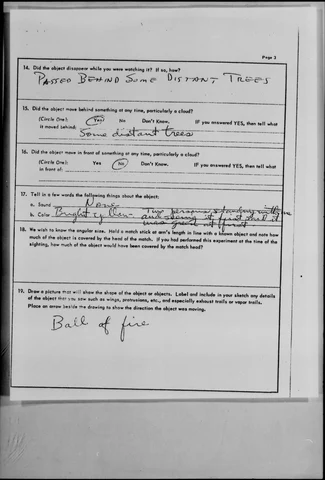 Page 3
14. Did the object disappear while you were watching it? If so, how?
PASSED BEHIND SOME DISTANT TREES
15. Did the object move behind something at any time, particularly a cloud?
(Circle One): Yes No Don't Know. IF you answered YES, then tell what
it moved behind: Some distant trees
16. Did the object move in front of something at any time, particularly a cloud?
(Circle One): Yes No Don't Know. IF you answered YES, then tell what
in front of:
17. Tell in a few words the following things about the object:
a. Sound None
b. Color Bright Two persons standing with me
and seeing it first said it
was green at first
18. We wish to know the angular size. Hold a match stick at arm's length in line with a known object and note how
much of the object is covered by the head of the match. If you had performed this experiment at the time of the
sighting, how much of the object would have been covered by the match head?
19. Draw a picture that will show the shape of the object or objects. Label and include in your sketch any details
of the object that you saw such as wings, protrusions, etc., and especially exhaust trails or vapor trails.
Place an arrow beside the drawing to show the direction the object was moving.
Ball of fire